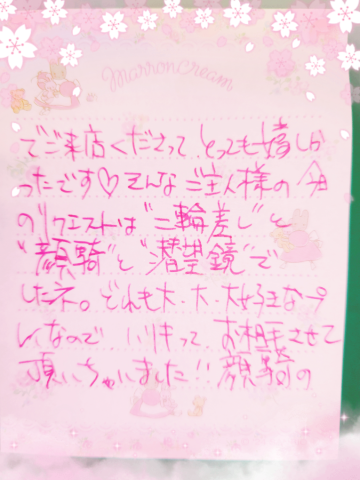 marroncream
でご来店くださって、とっても嬉しか
ったです♡そんなご主人様の今日
のリクエストは“二輪差し”と
“顔騎”と“潜望鏡”で
したネ。どれも大・大・大好きなプ
レイなので、ハリキって、お相手させて
頂いちゃいました!!顔騎の